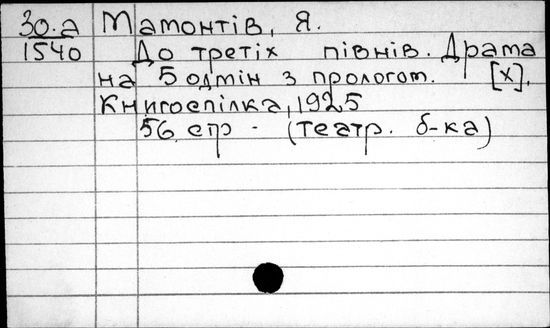 30.а Мамонтів, Я.
1540 До третіх півнів. Драма
на 5 одмін з прологом. [х],
Книгоспілка, 1925
56 стр - (театр. б-ка)